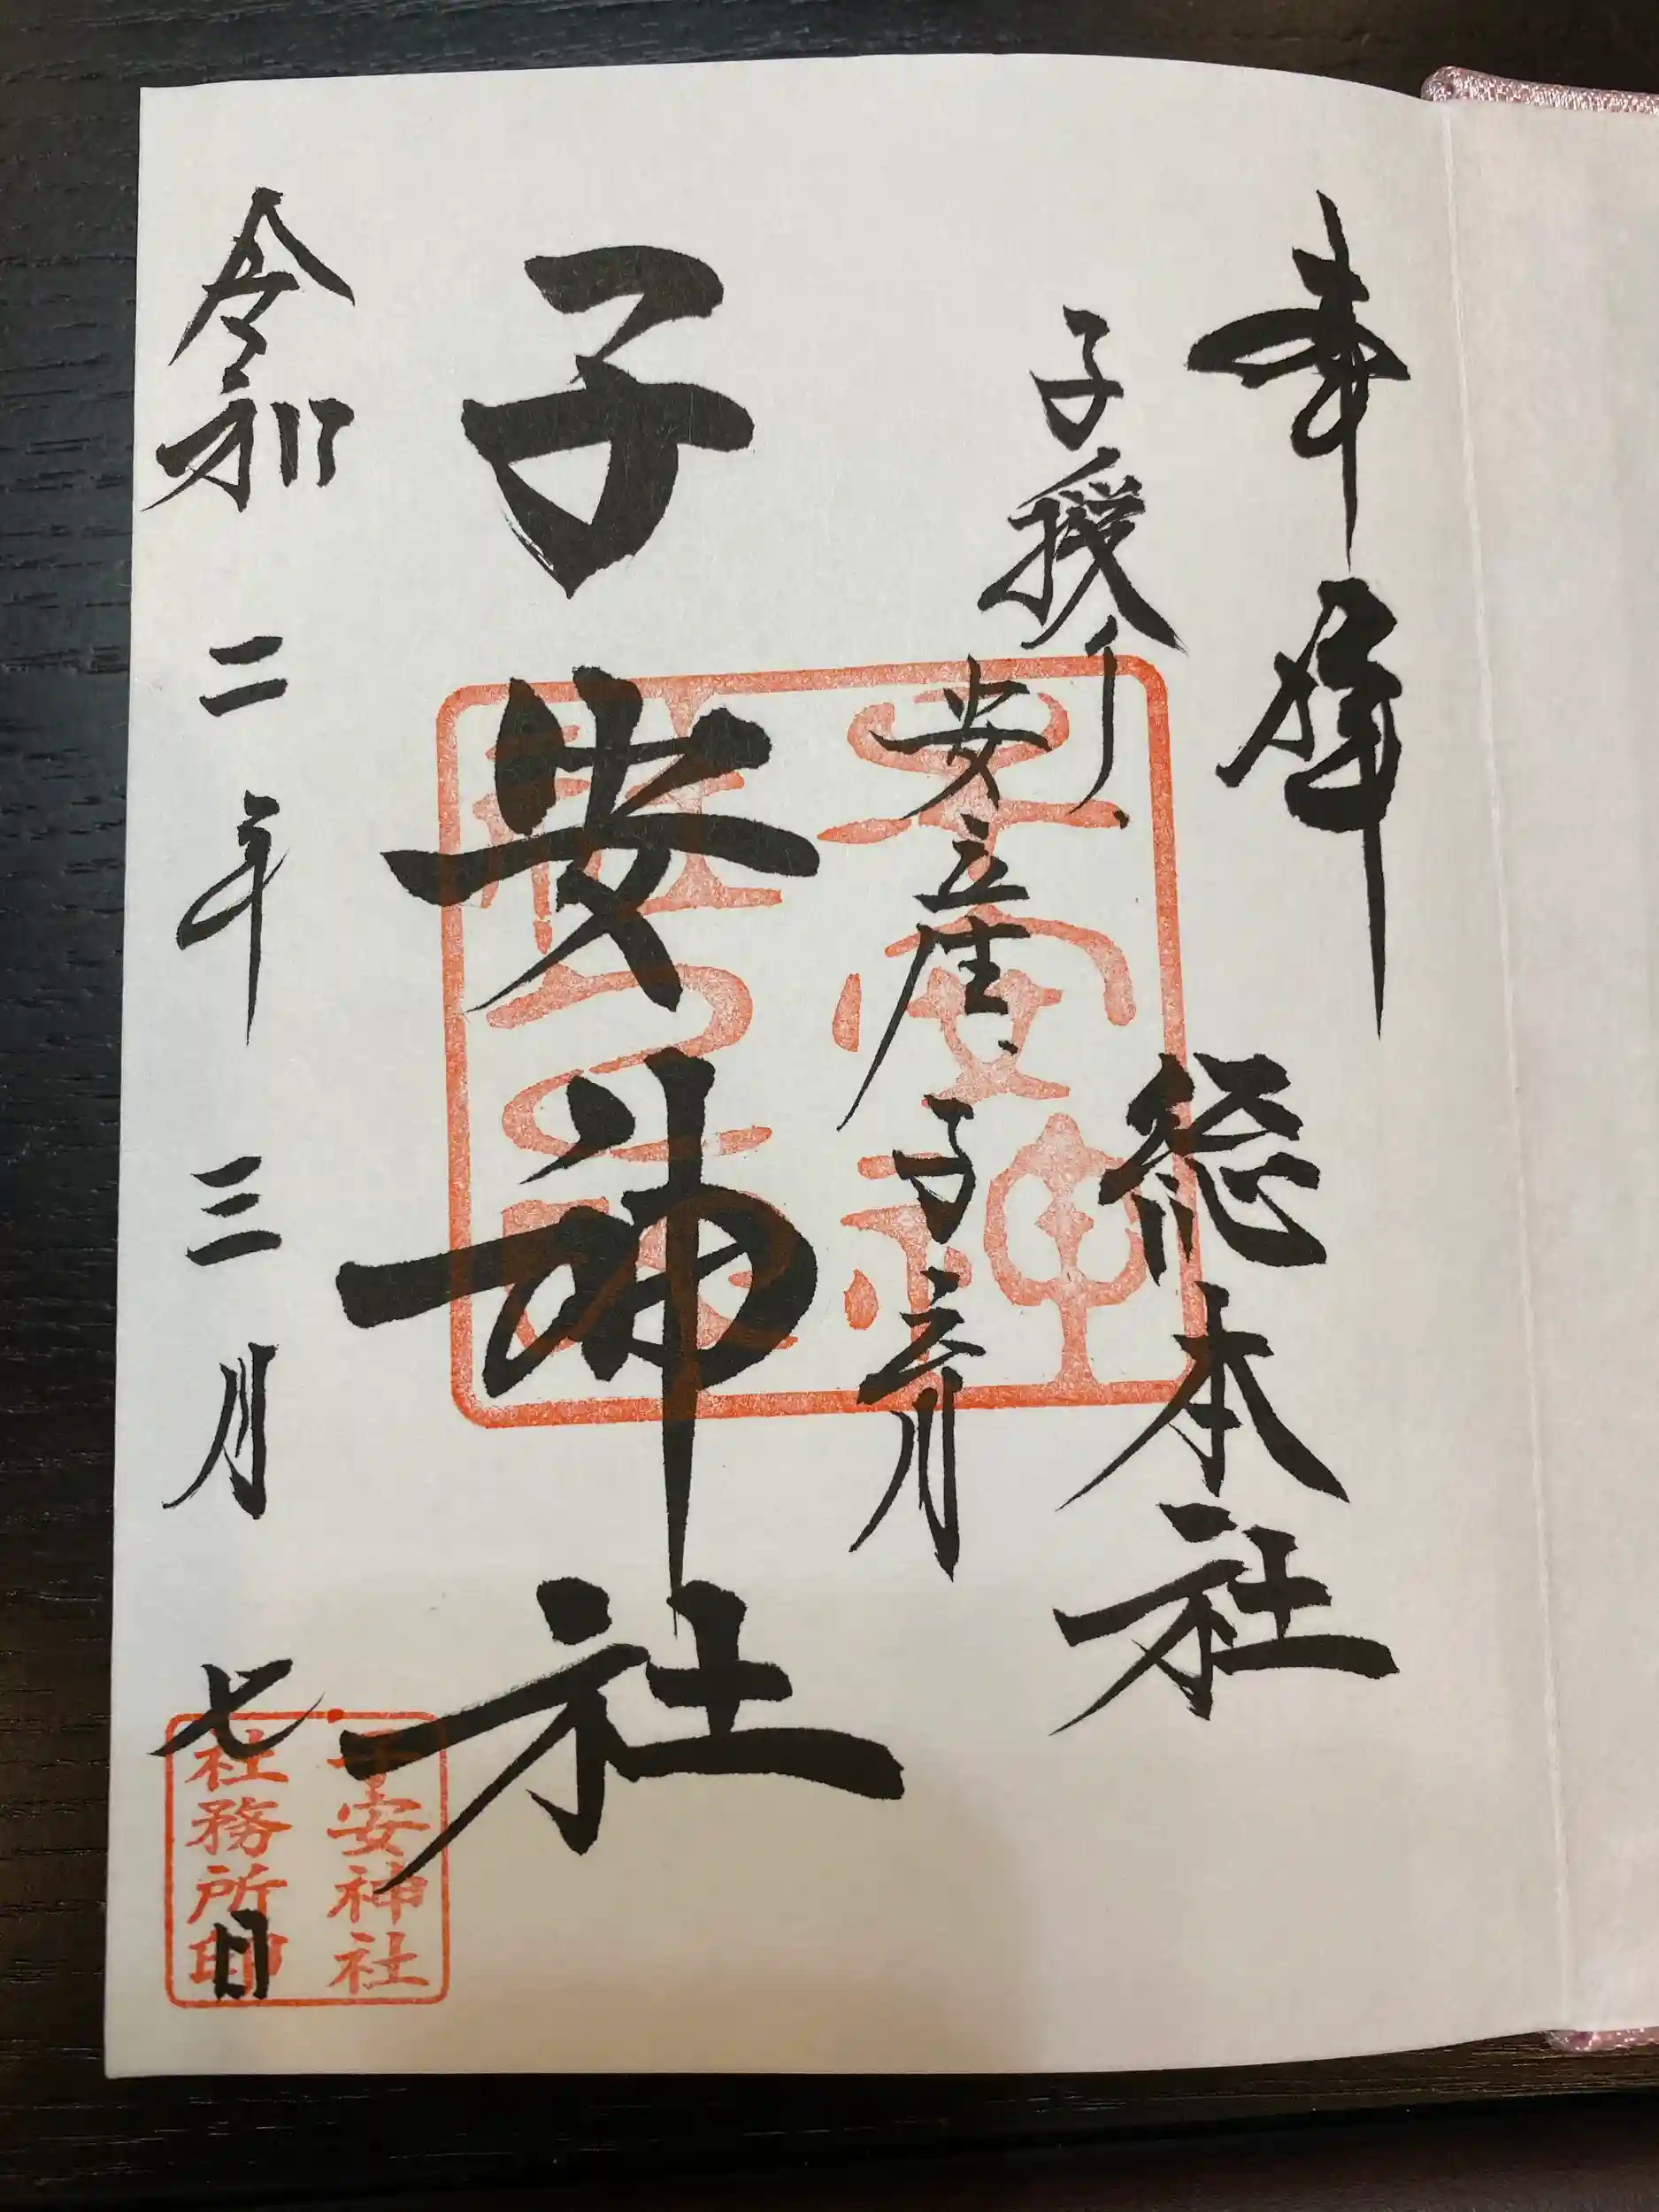 奉拝
総本社
子授り、
安産、子育
子安神社
令和二年三月七日
子安神社
社務所印